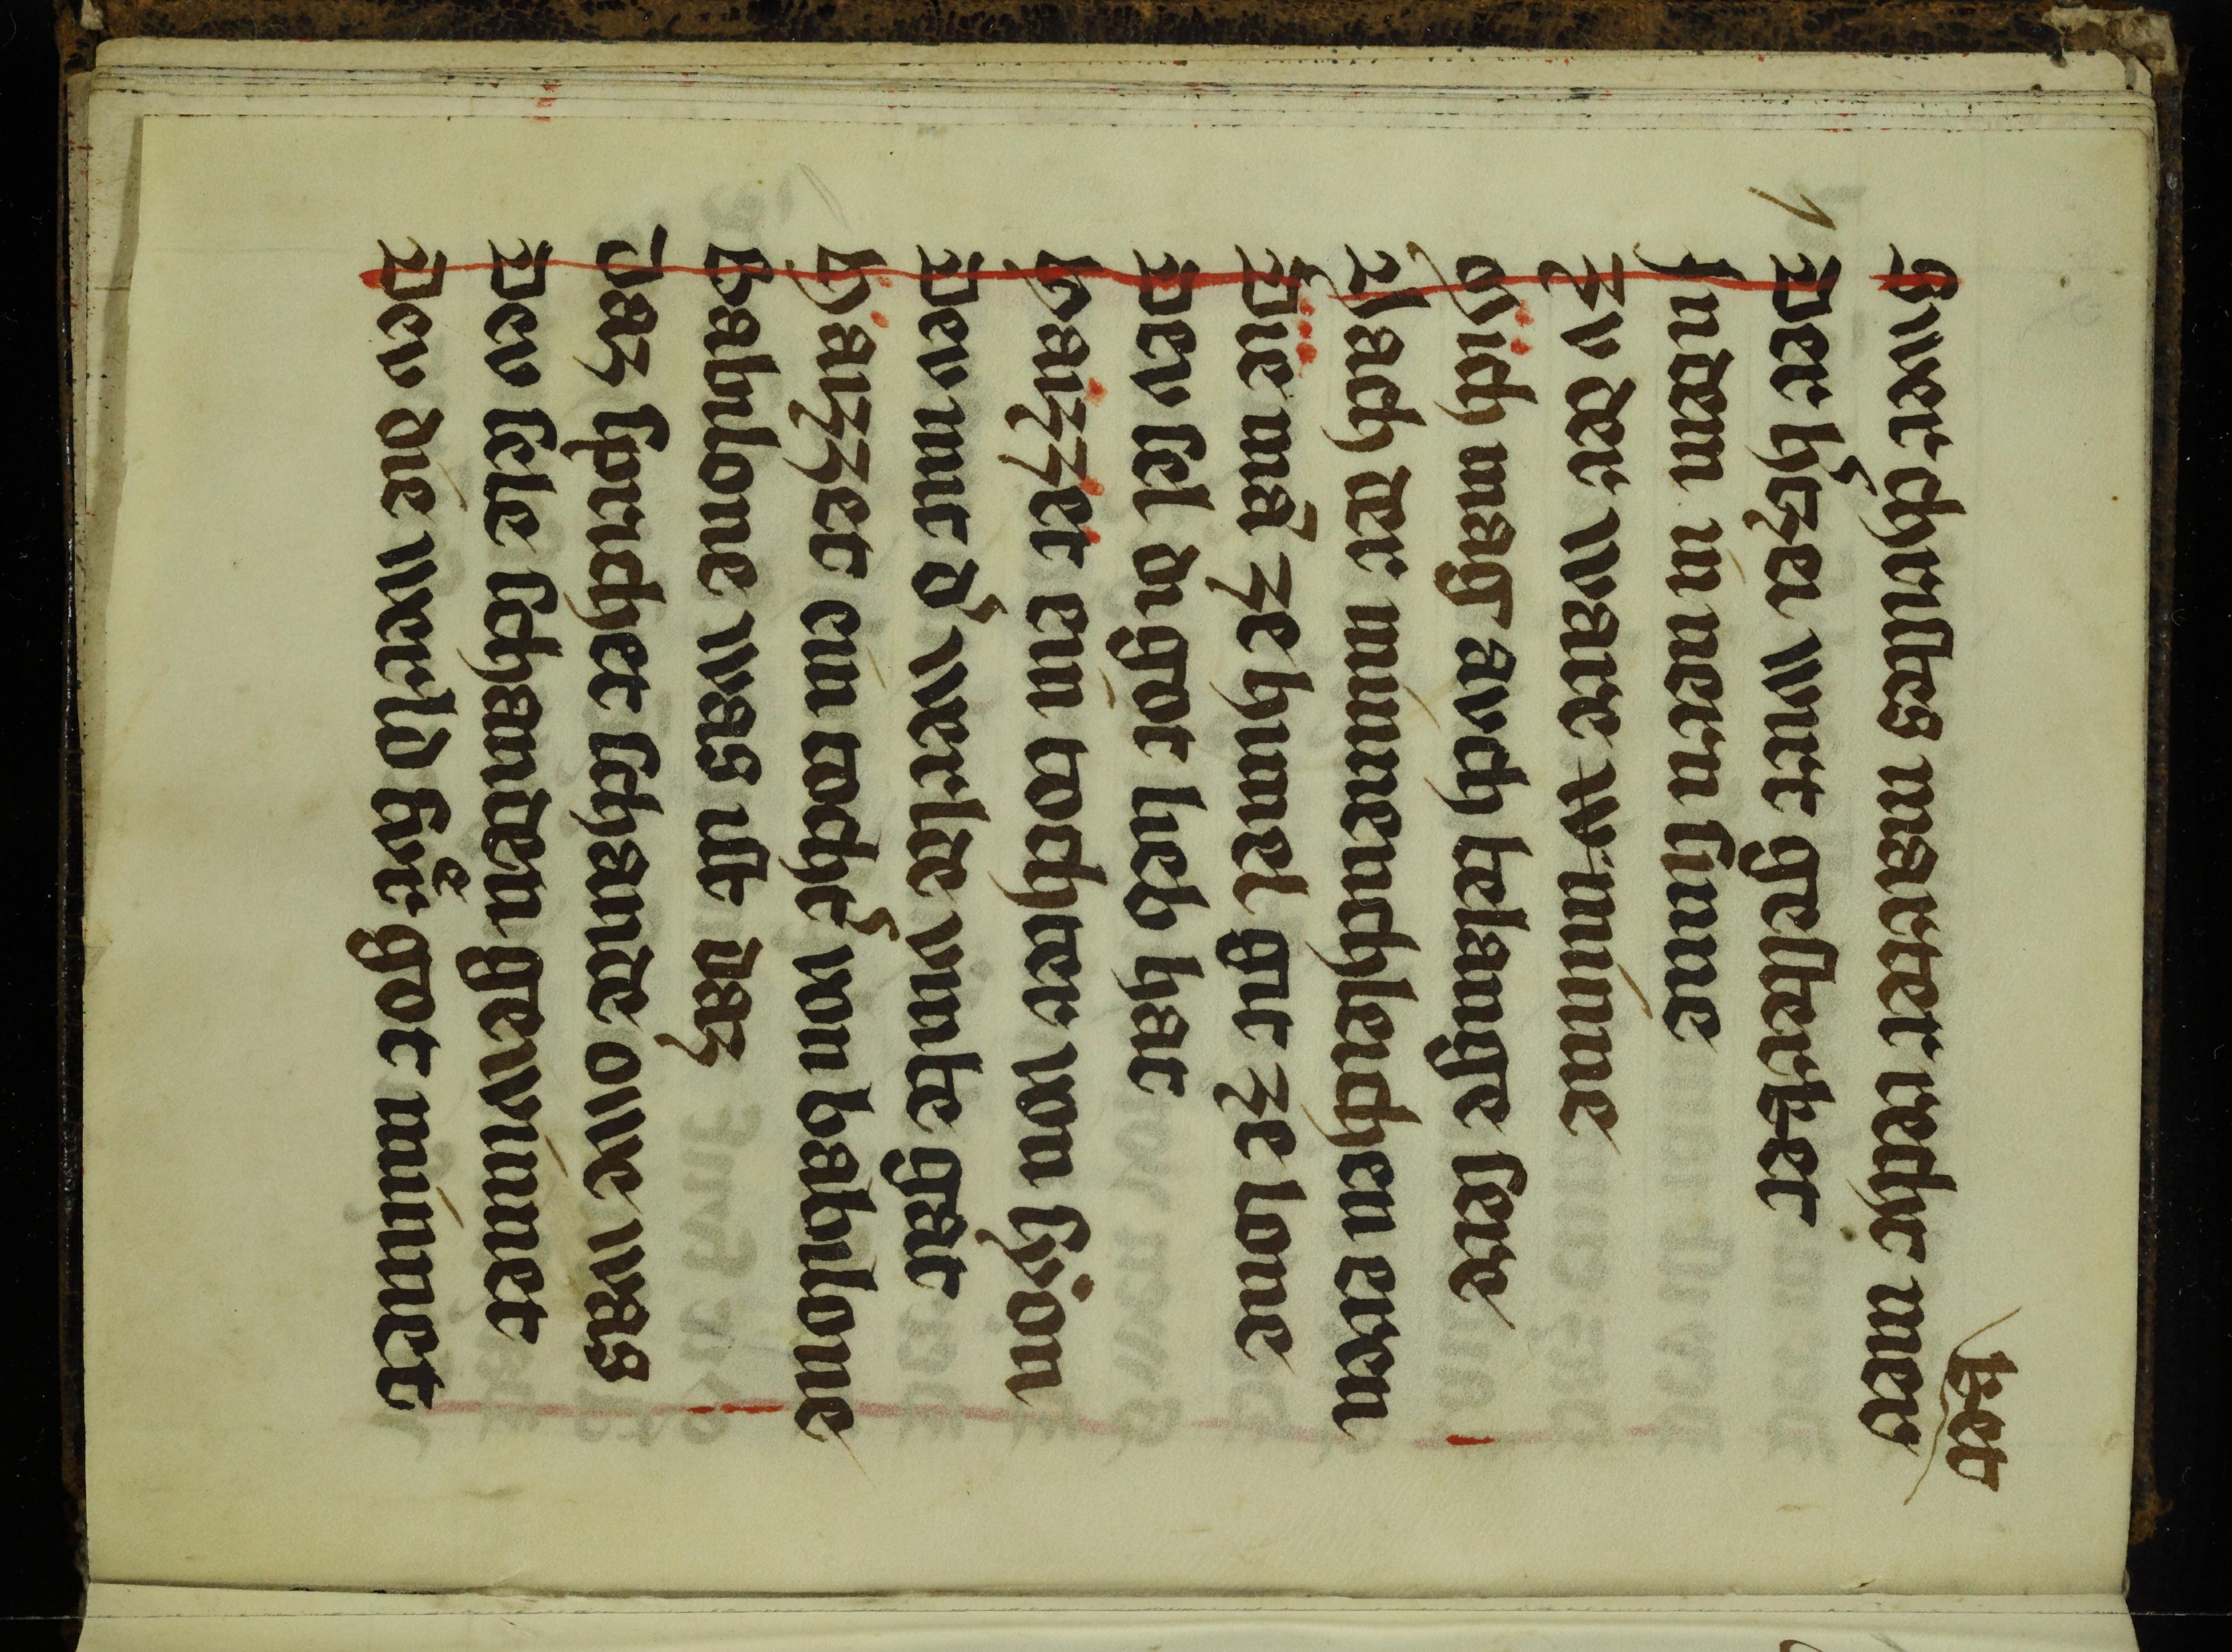 ket
Swer chriſtes marter rechte mer
Der hˀzen wirt geſterket
In dem inneren ſinne
Zv der ware w minne
Mich mag avch belange ſere
Nach der minnenchleichen eren
Die mā ze himel git ze lone
Dev ſel di got lieb hat
Haizzet ein tochter von ſyon
Dev mit dˀ werlde vmbe gat
Haizzet ein tochtˀ von babilone
Babilone was iſt daz
Daz ſprichet ſchande owe was
Dev ſele ſchanden gewinnet
Dev die werld fvͤr got minnet